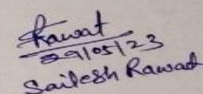 Rawat
29/05/23
Sailesh Rawat